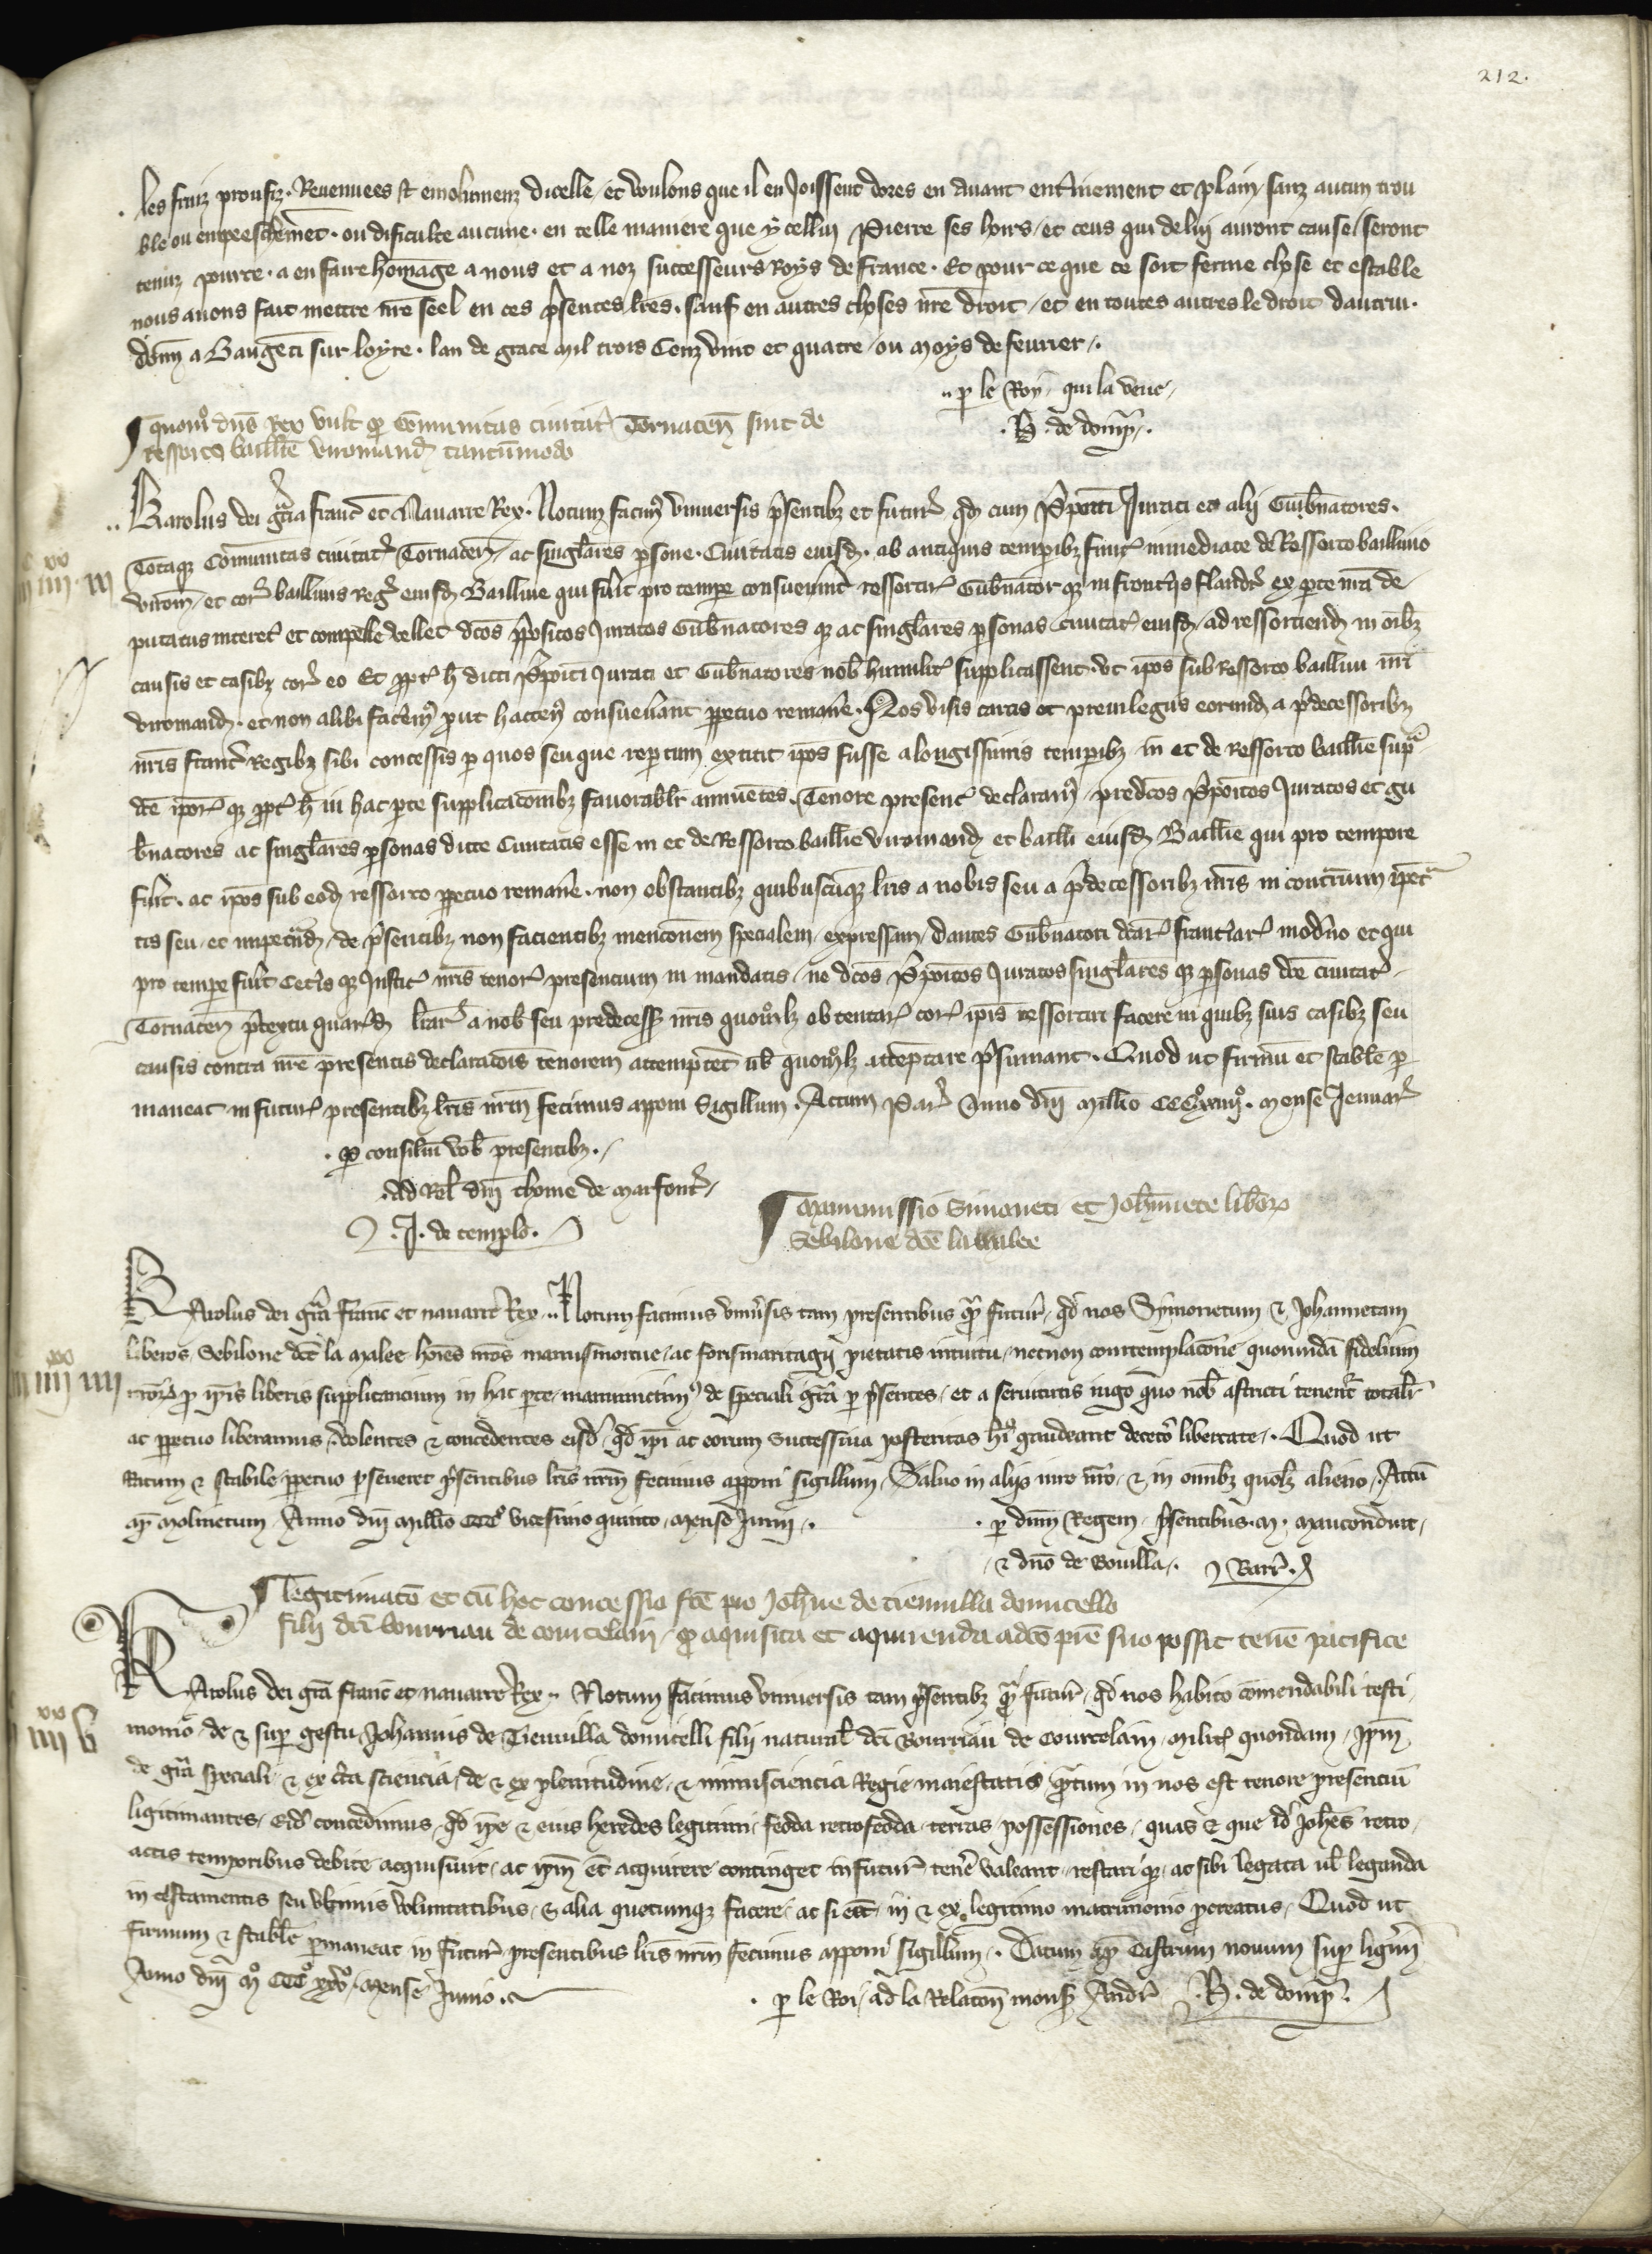 212.
les fruiz proufiz. Revenuees et emolumenz dicelle, et voulons que il en Joissent dores en avant entierement et plain, sanz aucun trou
ble ou empeeschement. ou dificulte aucune. en telle maniere que ycellui Pierre ses hoirs, et ceus qui de lui auront cause, seront
tenuz pource. a en faire homage a nous et a noz successeurs Roys de France. Et pour ce que ce soit ferme chose et estable
nous avons fait mettre nre seel en ces psentes lres. sauf en autres choses nre droit, et en toutes autres le droit dautrui.
donn a Baugenci sur loyre. lan de grace mil trois Cenz vint et quatre, ou moys de fevrier.
p le Roy, qui la veue
H. de domp.
quom dns Rex vult q Communitas civitat Tornacen sint de
ressorto baillie viromand tantummodo
Karolus dei gra franc et Navarre Rex. Notum facim universis psentibz et futur qd cum Ppoiti Jurati et alii Gubnatores.
Totaque Communitas civitat Tornacen, ac singlares psone. Civitatis eiusd. ab antiquis tempibz sint inmediate de Ressorto baillivio
virom, et cor baillivis reg eiusd Baillivie qui fuit pro tempe consueverint ressortir Gubnator que in fronteris flandr ex parte nra de
putatus niteret et compelle vellet dcos ppositos Juratos Gubnatores que ac singlares psonas civitat eiusd, ad ressortiend in oibz
causis et casibz cor eo Et ppt h dicti Ppoiti Jurati et Gubnatores nob humilit supplicassent. ut ipos sub Ressorto baillivi nri
viromand. et non alibi facerem put hacten consueverant ppetuo remane. Nos visis cartis et previlegiis eorumd a pdecessoribz
nris franc Regibz sibi concessis p quos seu que repertum extitit ipos fuisse a longissimis tempibz in et de ressorto baillie sup
dce ipor que ppt h in hac pte supplicacombz favorablr annuentes. Tenore present declaram, predcos Ppoitos Juratos et gu
bnatores ac singlares psonas dicte Civitatis esse in et de Ressorto baillie viromand et bailli eiusd Baillie qui pro tempore
fuit. ac ipos sub eod ressorto ppetuo remane. non obstantibz quibuscumque lris a nobis seu a pdecessoribz nris in contrium impet
tis seu, et impetrand, de psentibz non facientibz menconem specialem, expressam, dantes Gubnatori dcar frontiar moderno et qui
pro tempe fuit Ceteris que Justic nris tenor presencium in mandatis, ne dcos Ppoitos Juratos singlares que psonas dce civitat
Tornacen ptextu quard lrar a nob seu predecess nris quomolz obtentar cor ipis ressortiri facere in quibz suis casibz seu
causis contra nre presentis declaracois tenorem attemptet ul quomolz attemptare psumant. Quod ut firmu et stable p
maneat in futur presentibz lris nrm fecimus apponi Sigillum. Actum Par Anno dni Millio CCCxxiiii. mense Jenuar
p consiliu vob presentibz.
ad Rel dni thome de Marfont
J. de templo.
Manumissio Simoneti et Johannete liberor
Sebilone dce la Malee
Karolus dei gra franc et navarre Rex. Notum facimus universis tam presentibus q futur, qd nos Symonetum & Johannetam
liberos Sebilone dce la Malee hoies nros manusmortue, ac forismaritagii pietatis intuitu, necnon contemplacione quorumdam fidelium
nror p ipis liberis supplicancium in hac pte, manumictim de speciali gra p psentes, et a servitutis iugo quo nob astricti tenent totalr
ac ppetuo liberamus, volentes & concedentes eisd qd ipi ac eorum Successiva posteritas hi gaudeant decetero libertate. Quod ut
Ratum & stabile ppetuo pseveret psentibus lris nrm fecimus apponi sigillum. Salvo in aliis iure nro, & in omibz quolz alieno. Actu
ap Molinetum Anno dni Millio CCC vicesimo quinto, mense Junii.
p dnm Regem, psentibus. M. Mauconduit,
& dno de Bouilla. Barr.
legitimato et cu hoc concessio fce pro Johne de Tienvilla domicello
filii dci Bourriau de Courcelain, q aquisita et aquirenda adeo pre suo possit tene pacifice
Karolus dei gra franc et navarre Rex. Notum facimus universis tam psentibz q futur, qd nos habito comendabili testi
monio, de & sup gestu Johannis de Tienvilla domicelli filii natural dci Bourriau de Courcelain, Milit quondam, ipm
de gra speciali, & ex certa sciencia, de & ex plenitudine, & munificiencia Regie maiestatis quatum in nos est tenore presenciu
ligitimantes, eid concedimus, qd ipe & eius heredes legitimi, feoda retrofeoda terras possessiones, quas & que id Johes retro
actis temporibus debite acquisivit, ac ipm et acquirere continget in futur tene valeant, testari que, ac sibi legata ul leganda
in testamentis seu ultimis voluntatibus, & alia quecumque facere, ac si esset in & ex legitimo matrimonio procreatus, Quod ut
firmum & stable pmaneat in futur presentibus lris nrm fecimus apponi sigillum. Datum ap Castrum novum sup ligim
Anno dni M CCC xxv, mense Junio.
p le Roi, ad la Relacon mons Andr H. de domp.